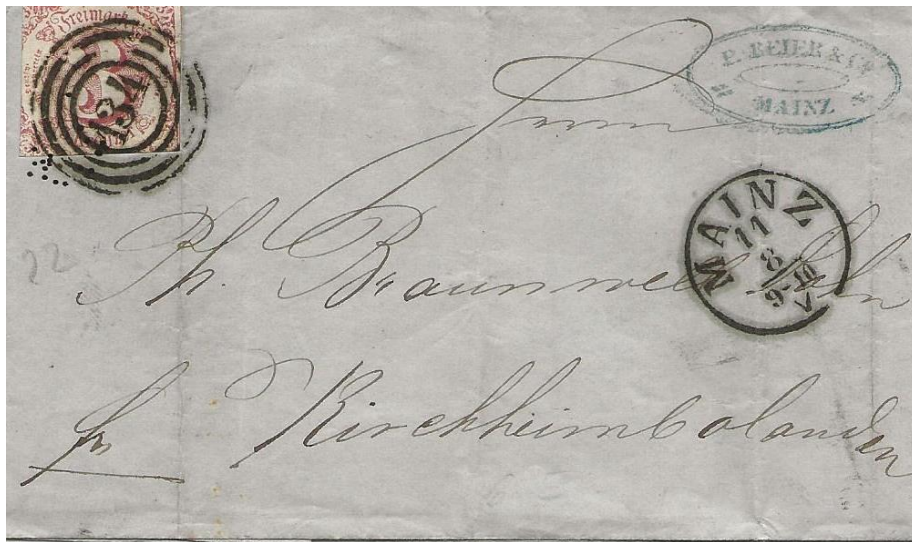 Freimarke
3
134
P. BEIER & Co
MAINZ
Herrn
MAINZ
11
8
Ph. Braunwell Sohn
fr
Kirchheimbolanden
22